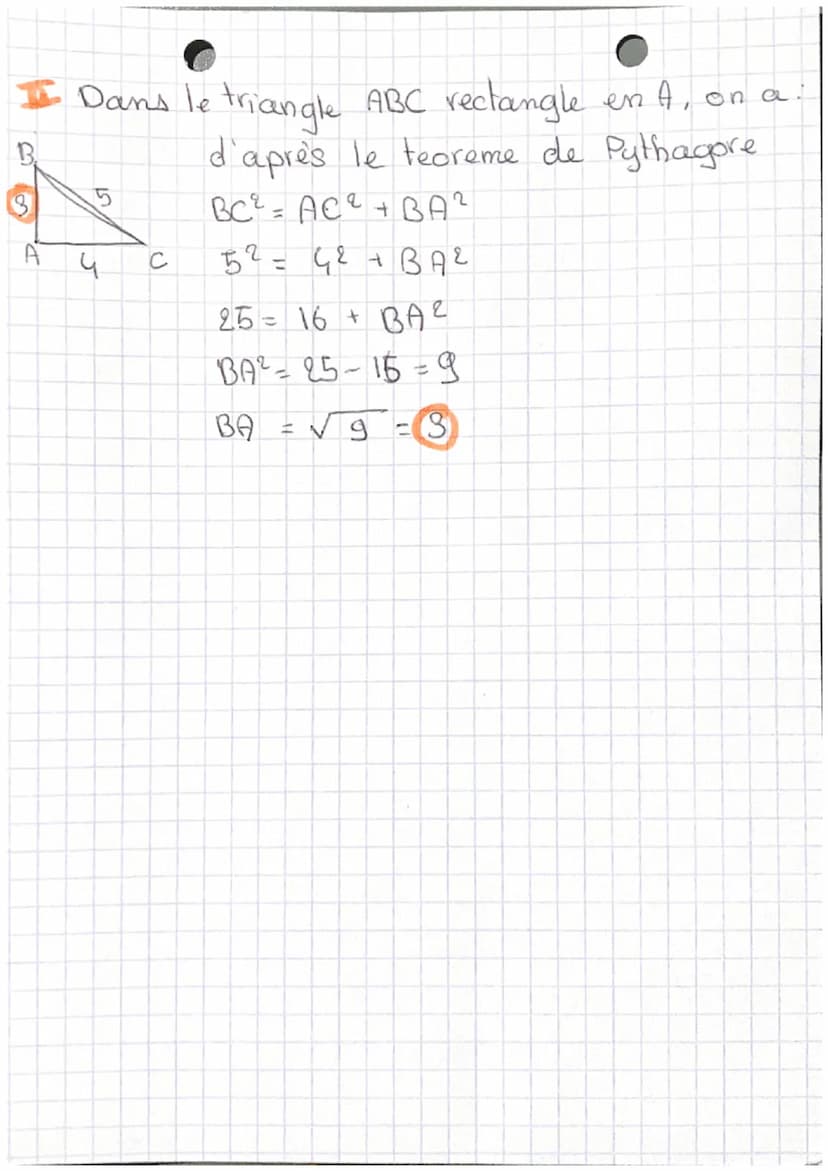 II Dans le triangle ABC rectangle en A, on a :
d'après le teoreme de Pythagore
B
3
5
A
4
C
BC² = AC² + BA²
5² = 4² + BA²
25 = 16 + BA²
BA² = 25 - 16 = 9
BA = √9 = 3